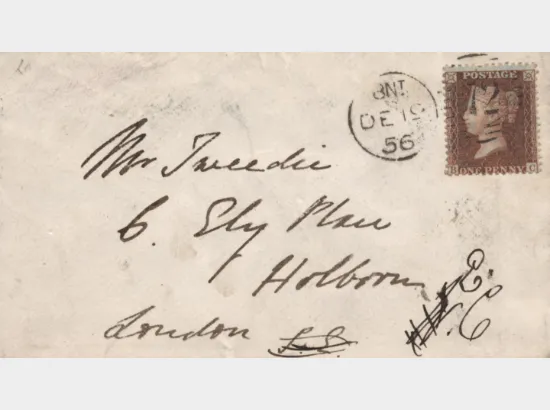 3NT
DE 16
56
POSTAGE
12
ONE PENNY
Mr Tweedie
6. Ely Place
Holborn
London
E.C